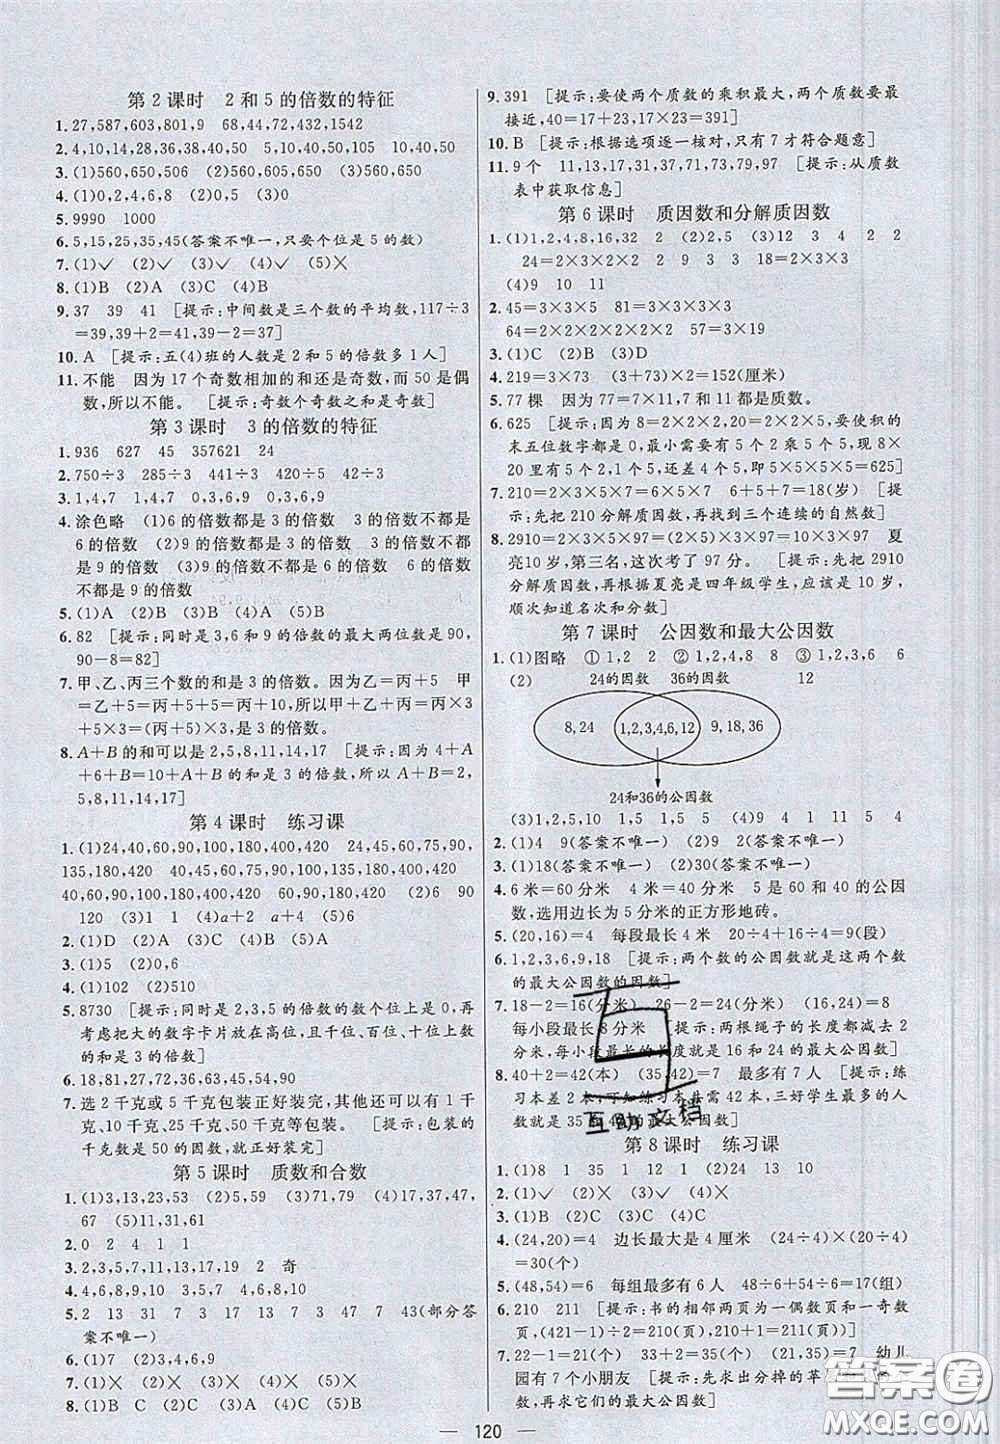 第2课时 2和5的倍数的特征
1.27,587,603,801,9 68,44,72,432,1542
2.4,10,14,28,36,38,40,50 5,10,40,45,50 10,40,50
3.(1)560,780,650 (2)560,605,650 (3)560,650
4.(1)0,2,4,6,8 (2)0,5 (3)0
5.9990 1000
6.5,15,25,35,45(答案不唯一,只要个位是5的数)
7.(1)✓ (2)✓ (3)✓ (4)✓ (5)×
8.(1)B (2)A (3)C (4)B
9.37 39 41 [提示:中间数是三个数的平均数,117÷3
=39,39+2=41,39-2=37]
10.A [提示:五(4)班的人数是2和5的倍数多1人]
11.不能 因为17个奇数相加的和还是奇数,而50是偶
数,所以不能。[提示:奇数个奇数之和是奇数]
第3课时 3的倍数的特征
1.936 627 45 357621 24
2.750÷3 285÷3 441÷3 420÷5 42÷3
3.1,4,7 0,3,6,9 0,3,6,9
4.涂色略 (1)6的倍数都是3的倍数 3的倍数不都是
6的倍数 (2)9的倍数都是3的倍数 3的倍数不都
是9的倍数 (3)9的倍数不都是6的倍数 6的倍数
不都是9的倍数
5.(1)A (2)B (3)C (4)B
6.82 [提示:同时是3,6和9的倍数的最大两位数是90,
90-8=82]
7.甲、乙、丙三个数的和是3的倍数。因为乙=丙+5 甲
=乙+5=丙+5+5=丙+10,所以甲+乙+丙=丙+
10+丙+5+丙=3丙+15,所以和是3的倍数。
8.A+B的和可以是2,5,8,11,14,17 [提示:因为4+A
+6+B=10+A+B的和是3的倍数,所以A+B=2,
5,8,11,14,17]
第4课时 练习课
1.(1)24,40,60,90,100,180,400,420 24,45,60,75,90,
135,180,420 40,45,60,75,90,100,135,180,400,420
40,60,90,100,180,400,420 60,90,180,420 (2)6 90
120 (3)1 1 (4)a+2 a+4 (5)6
2.(1)D (2)A (3)C (4)B (5)A
3.(1)5 (2)0,6
4.(1)102 (2)510
5.8730 [提示:同时是2,3,5的倍数个位上是0,再
考虑把大的数字卡片放在高位,且千位、百位、十位上数
的和是3的倍数]
6.18,81,27,72,36,63,45,54,90
7.选2千克或5千克包装正好装完,其他还可以有1千
克、10千克、25千克、50千克等包装。[提示:包装的
千克数是50的因数,就正好装完]
第5课时 质数和合数
1.(1)3,13,23,53 (2)59,79 (3)41,61,71 (4)17,37,47,
67 (5)11,31,61,91
2.0 2 4 1
3.2,3,5,7,11,13,17,19 2 奇
4.5,7,6,5,3 4,6,8,9,10
5.2 13 31 7 3 17 13 7 47 7 43(部分答
案不唯一)
6.(1)7 (2)3,4,6,9
7.(1)× (2)× (3)× (4)× (5)✓ (6)×
8.(1)B C (2)A C (3)B C (4)A C
9.391 [提示:要使两个质数的乘积最大,两个质数要最
接近,40=17+23,17×23=391]
10.B [提示:根据选项逐一核对,只有7才符合题意]
11.9个 11,13,17,31,37,71,73,79,97 [提示:从质数
表中获取信息]
第6课时 质因数和分解质因数
1.(1)1,2,4,8,16,32 2 (2)2,5 (3)12 3 4 2 2
24=2×2×2×3 2 2 9 3 3 18=2×3×3
(4)9 10 11
2.45=3×3×5 81=3×3×3×3
64=2×2×2×2×2×2 57=3×19
3.(1)C (2)B (3)D
4.219=3×73 (3+73)×2=152(厘米)
5.77棵 因为77=7×11,7和11都是质数。
6.625 [提示:8=2×2×2,20=2×2×5,要使乘积的
末五位数字都是0,最小需要有5个2乘5个5,而8×
20里有5个2,1个5,还差4个5,即5×5×5×5=625]
7.210=2×3×5×7=6×5×7 6+5+7=18(岁) [提
示:先把210分解质因数,再找到三个连续的自然数]
8.2910=2×3×5×97=(2×5)×3×97=10×3×97 夏
亮10岁,第三名,这次考了97分。 [提示:先把2910
分解质因数,再根据夏亮是四年级学生,应该是10岁,
顺次知道名次和分数]
第7课时 公因数和最大公因数
1.(1)图略 ①1,2 2 ②1,2,4,8 8 ③1,2,3,6 6
(2) 24的因数 36的因数 12
8,24 1,2,3,4,6,12 9,18,36
24和36的公因数
(3)1,2,5,10 1,5 1,5 5 (4)9 11 1 5 4 8
2.(1)4 9(答案不唯一) (2)4 9(答案不唯一)
3.(1)18(答案不唯一) (2)30(答案不唯一)
4.6米=60分米 4米=40分米 5是60和40的公因
数,选用边长为5分米的正方形地砖。
5.(20,16)=4 每段最长4米 20÷4+16÷4=9(段)
6.1,2,3,6,9,18 [提示:两个数的公因数就是这两个数
的最大公因数的因数]
7.18-2=16(分米) 26-2=24(分米) (16,24)=8
每小段最长8分米 [提示:两根绳子的长度都减去2
分米,每小段最长的长度就是16和24的最大公因数]
8.40+2=42(本) (35,42)=7 最多有7人 [提示:练
习本差2本,可知练习本共需42本,三好学生最多的人
数就是35和42的最大公因数]
第8课时 练习课
1.(1)8 1 35 1 12 1 (2)24 13 10
2.(1)✓ (2)× (3)× (4)✓ (5)×
3.(1)B (2)C (3)C (4)C
4.(24,20)=4 边长最大是4厘米 (24÷4)×(20÷4)
=30(个)
5.(48,54)=6 每组最多有6人 48÷6+54÷6=17(组)
6.210 211 [提示:书的相邻两页为一偶数页和一奇数
页,(421-1)÷2=210(页),(421+1)÷2=211(页)]
7.22-1=21(个) 33+2=35(个) (21,35)=7 幼儿
园有7个小朋友 [提示:先求出分掉的草
数,再求它们的最大公因数]
120
互助文档
答案圈
MXQE.COM